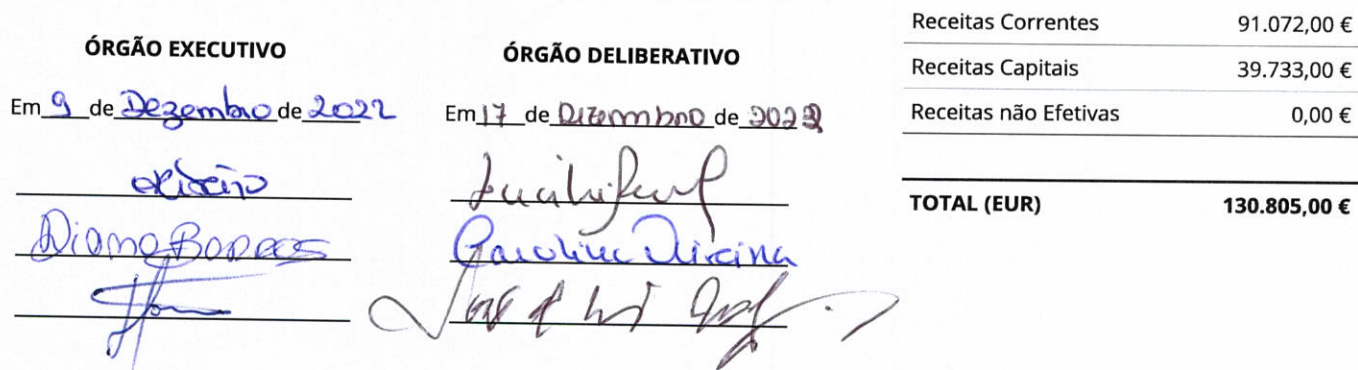 ÓRGÃO EXECUTIVO
Em 9 de Dezembro de 2022
Ribeiro
Diana Borges
ÓRGÃO DELIBERATIVO
Em 17 de Dezembro de 2022
Carolina Oliveira
Receitas Correntes 91.072,00 €
Receitas Capitais 39.733,00 €
Receitas não Efetivas 0,00 €
TOTAL (EUR) 130.805,00 €